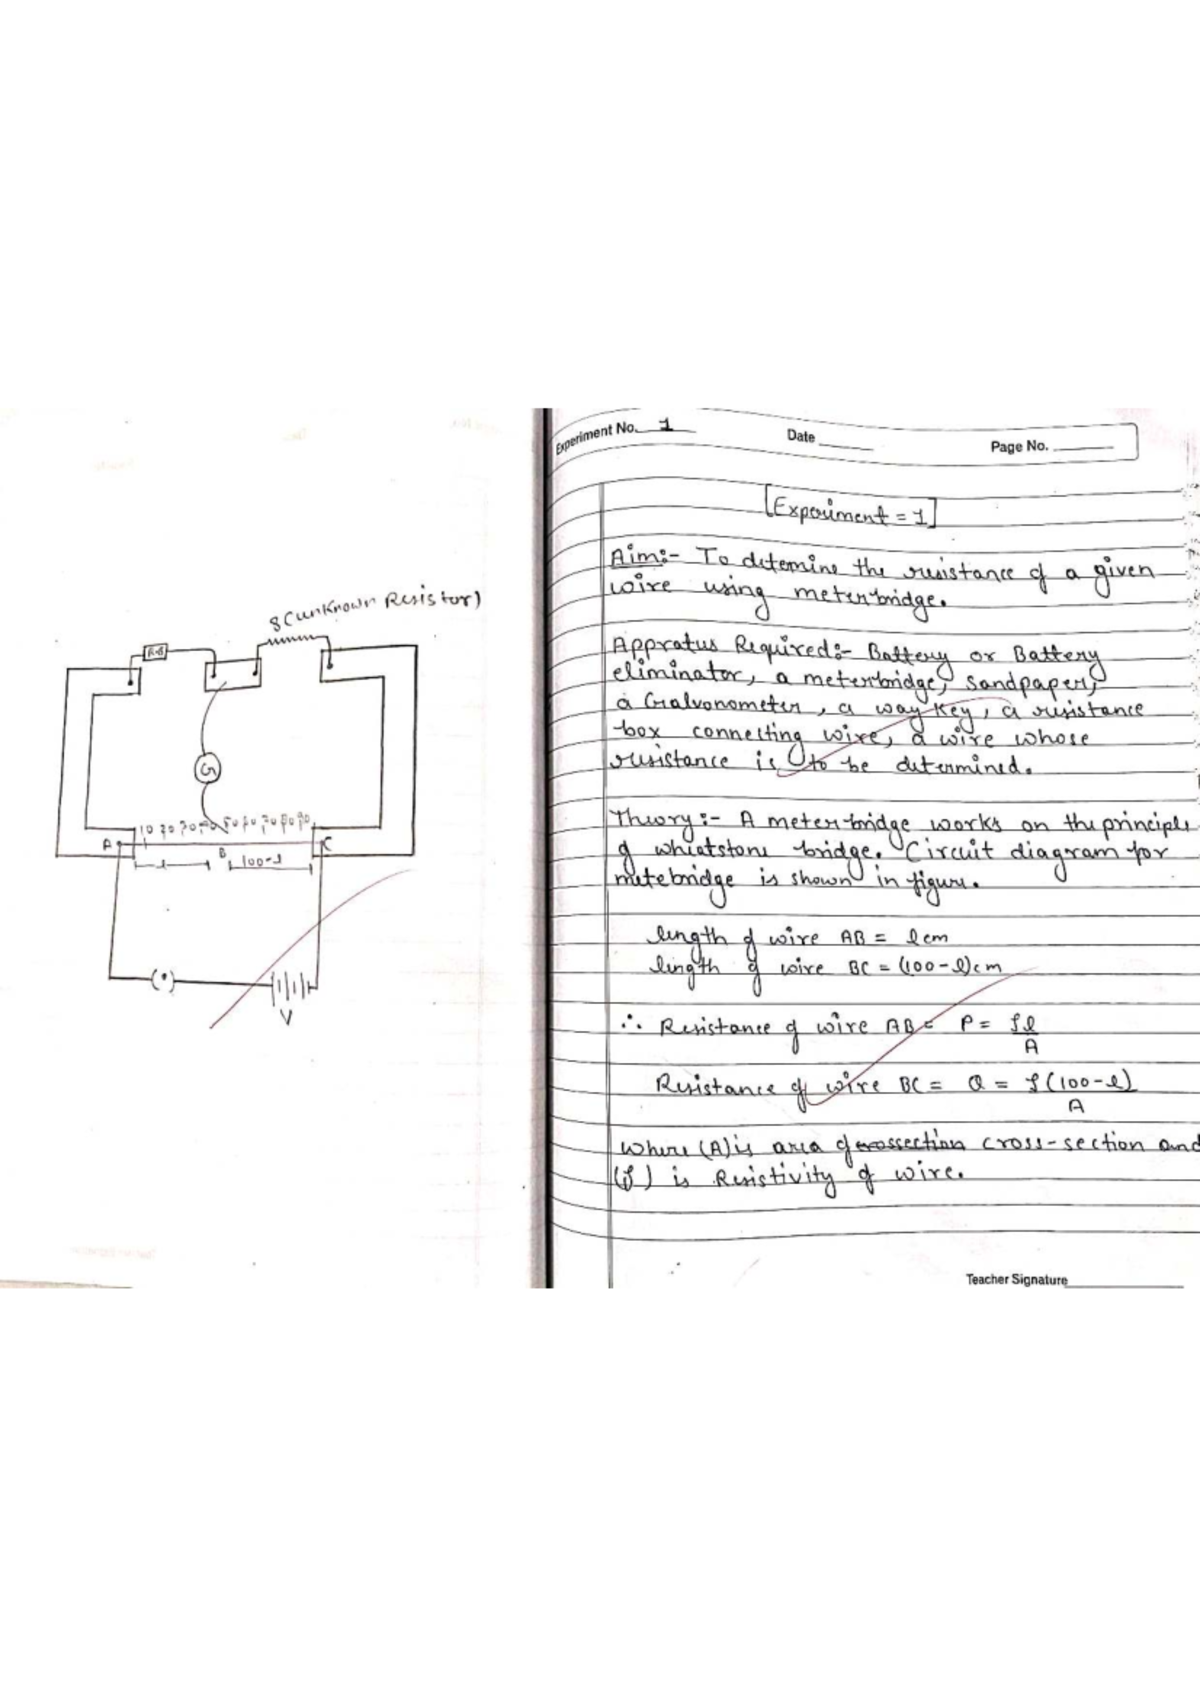 S (unknown Resistor)
R.B
G
10 20 30 40 50 60 70 80 90
A
B
C
l
100-l
(•)
V
Experiment No. 1
Date
Page No.
Experiment = 1
Aim:- To ditemine the resistance of a given
wire using meterbridge.
Appratus Required:- Battery or Battery
eliminator, a meterbridge, sandpaper,
a Galvonometer, a way key, a resistance
box connecting wire, a wire whose
resistance is to be determined.
Theory:- A meterbridge works on the principle
of wheatstone bridge. Circuit diagram for
metebridge is shown in figure.
length of wire AB = l cm
length of wire BC = (100-l)cm
∴ Resistance of wire AB = P = ρl
A
Resistance of wire BC = Q = ρ(100-l)
A
Where (A) is area of crossection cross-section and
(ρ) is Resistivity of wire.
Teacher Signature